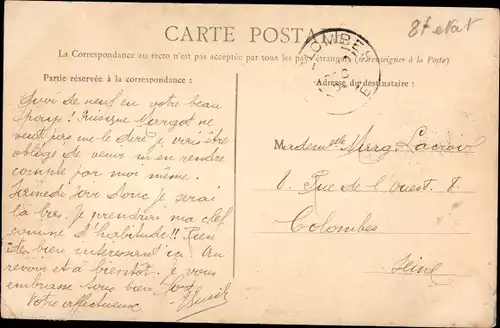 8t etat
CARTE POSTALE
La Correspondance au recto n'est pas acceptée par tous les pays étrangers (se renseigner à la Poste)
COLOMBES
Partie réservée à la correspondance :
Adresse du destinataire :
Quoi de neuf en votre beau
pays! Puisque Margot ne
veut pas me le dire, je vais être
obligé de venir m'en rendre
compte par moi même.
donc je serai
là bas. Je prendrai ma clef
comme d'habitude!! Rien
de bien intéressant ici. Au
revoir et à bientôt. Je vous
embrasse tous bien fort
Votre affectueux
Mademoiselle Marg. Lacroix
8. Rue de l'Ouest. 8
Colombes
Seine